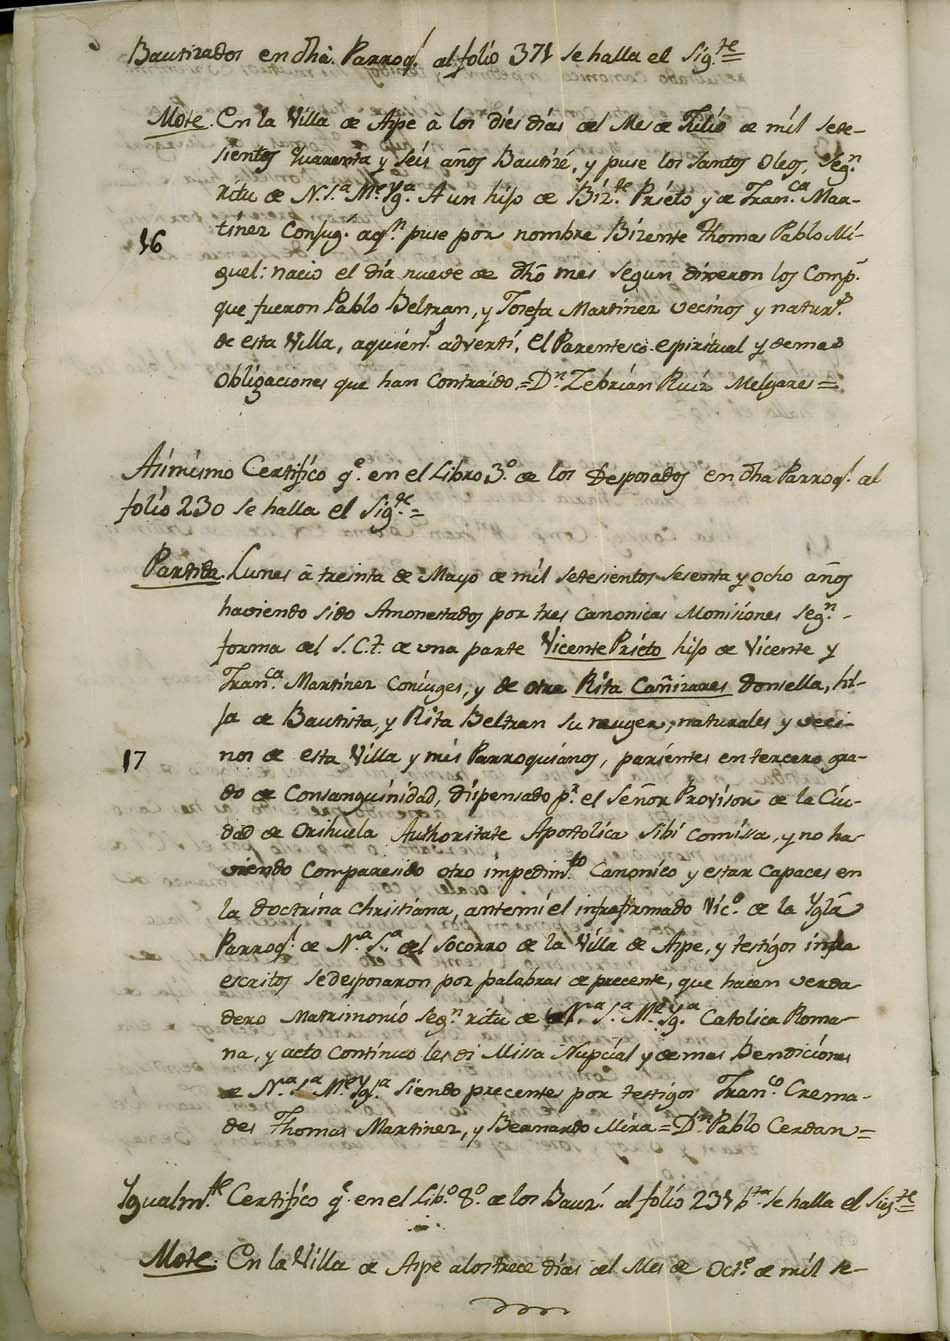 Bautizados en dha. Parroql. al folio 371 se halla el Sigte=
Mote. En la Villa de Aspe â los diés días del Mes de Julio de mil sete-
sientos quarenta y seis años Bautizé, y puse los santos oleos, segn.
ritu de N. Sa. Me. Yga. A un hijo de Bizte. Prieto y de Franca. Mar-
tinez Conjug. aqn. puse por nombre Bizente Thomas Pablo Mi-
16
guel: nacio el día nueve de dho mes segun dixeron los Comps.
que fueron Pablo Beltran, y Josefa Martinez vecinos y naturs.
de esta Villa, aquiens. advertí, el Parentesco espiritual y demas
obligaciones que han contraido.=Dn. Zebrian Ruiz Melgares=
Asimismo Certifico qe. en el Libro 3o. de los Desposados en dha Parroql. al
folio 230 se halla el Sigte.=
Partida. Lunes â treinta de Mayo de mil setesientos sesenta y ocho años
haviendo sido Amonestados por tres canonicas Monisiones segn.-
forma del S. C. T. de una parte Vicente Prieto hijo de Vicente y
Franca. Martinez Coniuges, y de otra Rita Cañizares donsella, hi-
ja de Bautista, y Rita Beltran su muger, naturales y veci-
17
nos de esta Villa y mis Parroquianos, parientes en tercero gra-
do de Consanguinidad, dispensado pr. el Señor Provisor de la Ciu-
dad de Orihuela Authoritate Apostolica sibi comissa, y no ha-
viendo comparesido otro impedimto. Canonico y estar capaces en
la doctrina christiana, antemi el infrafirmado Vico. de la Yglâ
Parroql. de Na. Sa. del Socorro de la Villa de Aspe, y testigos infra
escritos se desposaron por palabras de precente, que hacen verda
dero Matrimonio segn. ritu de Na. Sa. Me. Yga. Catolica Roma-
na, y acto continuo les di Missa Nupcial y demas Bendiciones
de Na. Sa. Me. Yga. siendo precentes por testigos Franco. Crema-
des Thomas Martinez, y Bernardo Mira=Dn. Pablo Cerdan=
Ygualmte. Certifico qe. en el Libo. 8o. de los Bauz. al folio 231 bta. se halla el Sigte=
Mote. En la Villa de Aspe alos trece dias del Mes de Octe. de mil se-